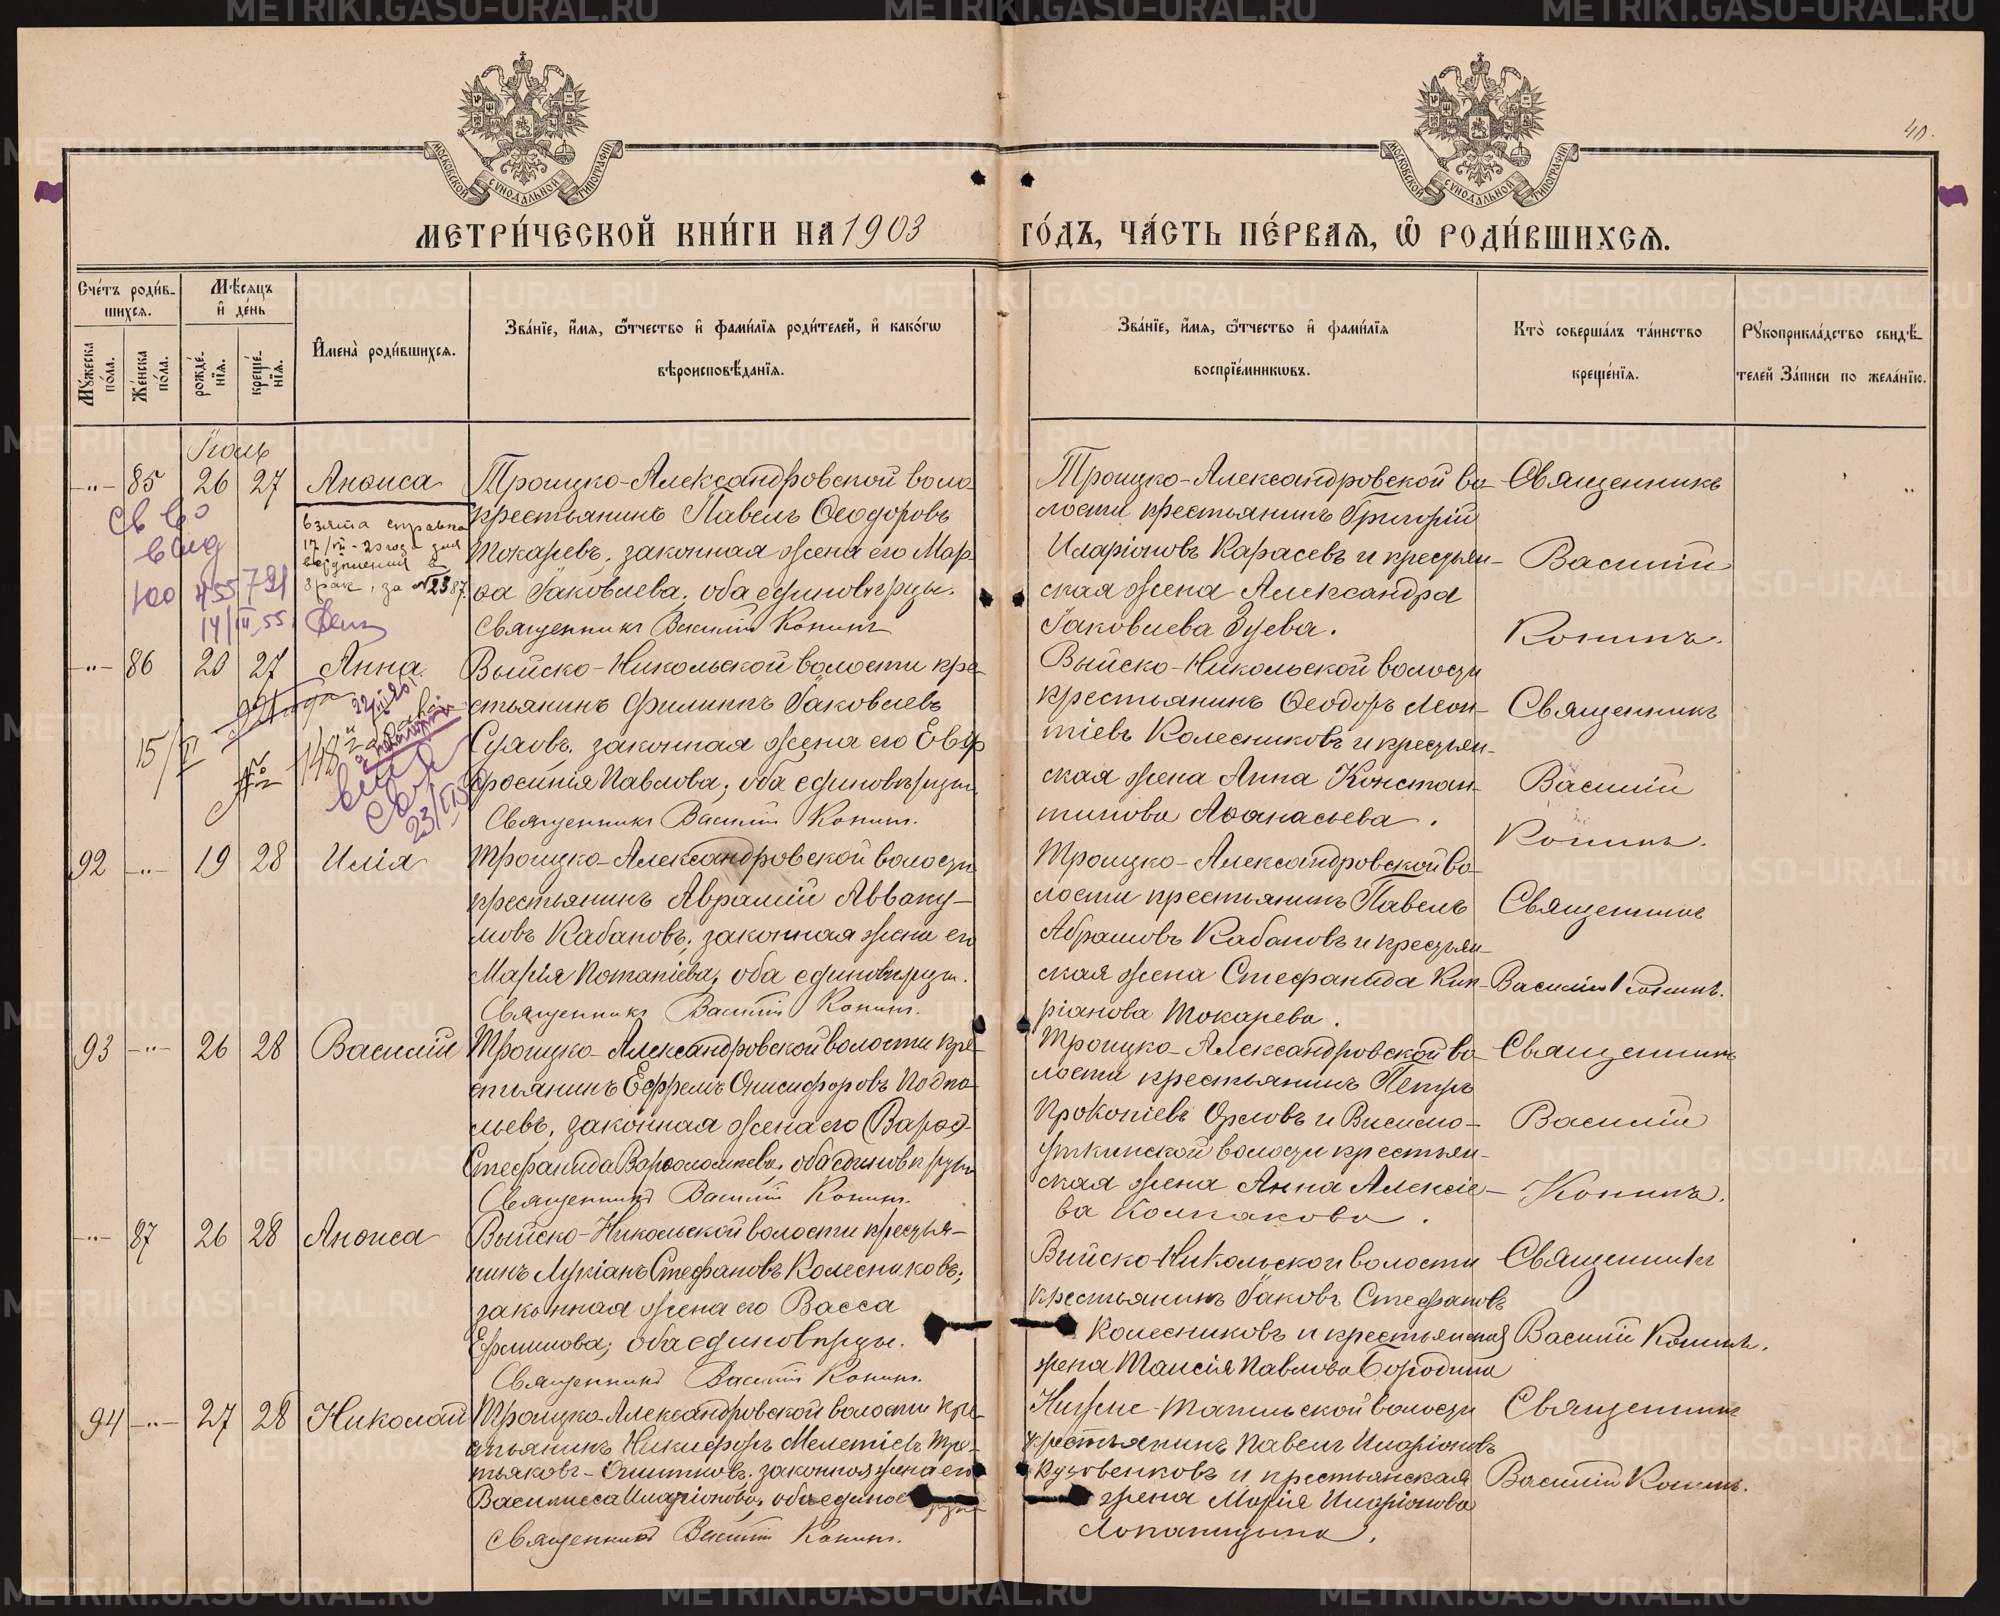 40.
МОСКОВСКОЙ СѴНОДАЛЬНОЙ ТИПОГРАФІИ
МОСКОВСКОЙ СѴНОДАЛЬНОЙ ТИПОГРАФІИ
МЕТРИ́ЧЕСКОЙ КНИ́ГИ НА 1903 ГО́ДЪ, ЧА́СТЬ ПЕ́РВАѦ, Ѽ РОДИ́ВШИХСѦ.
Сче́тъ роди́в-
шихсѧ.
Мꙋ́жеска по́ла.
Же́нска по́ла.
Мѣ́сѧцъ и҆ де́нь
рожде́-нїѧ.
креще́-нїѧ.
И҆мена̀ роди́вшихсѧ.
Зва́нїе, и҆́мѧ, ѻ҆́тчество и҆ фами́лїѧ роди́телей, и҆ како́гѡ
вѣроисповѣ́данїѧ.
Зва́нїе, и҆́мѧ, ѻ҆́тчество и҆ фами́лїѧ
воспрїе́мникѡвъ.
Кто̀ соверша́лъ та́инство
креще́нїѧ.
Рꙋкоприкла́дство свидѣ́-
телей За́писи по жела́нїю.
Іюль
-"- 85 26 27 Анѳиса
взята справка
Троицко-Александровской воло-
крестьянинъ Павелъ Ѳеодоровъ
Токаревъ, законная жена его Мар-
ѳа Іаковлева, оба единовѣрцы.
Священникъ Василій Конинъ
Троицко-Александровской во-
лости крестьянинъ Григорій
Иларіоновъ Карасевъ и крестьян-
ская жена Александра
Іаковлева Зуева.
Священникъ
Василій
Конинъ.
-"- 86 20 27 Анна
15/V
№ 148
Выйско-Никольской волости кре-
стьянинъ Филиппъ Іаковлевъ
Суховъ, законная жена его Евф-
росинія Павлова, оба единовѣрцы.
Священникъ Василій Конинъ.
Выйско-Никольской волости
крестьянинъ Ѳеодоръ Леон-
тіевъ Колесниковъ и крестьян-
ская жена Анна Констан-
тинова Аѳанасьева.
Священникъ
Василій
Конинъ.
92 -"- 19 28 Илія
Троицко-Александровской волости
крестьянинъ Аврамій Авваку-
мовъ Кабановъ, законная жена его
Марія Потапіева, оба единовѣрцы.
Священникъ Василій Конинъ.
Троицко-Александровской во-
лости крестьянинъ Павелъ
Абрамовъ Кабановъ и крестьян-
ская жена Стефанида Кип-
ріанова Токарева.
Священникъ
Василій Конинъ.
93 -"- 26 28 Василій
Троицко-Александровской волости кре-
стьянинъ Ефремъ Онисифоровъ Подко-
льевъ, законная жена его
Стефанида Варѳоломеева, оба единовѣрцы
Священникъ Василій Конинъ.
Троицко-Александровской во-
лости крестьянинъ Петръ
Прокопіевъ Орловъ и Висимо-
Уткинской волости крестьян-
ская жена Анна Алексіе-
ва Колпакова.
Священникъ
Василій
Конинъ.
-"- 87 26 28 Анѳиса
Выйско-Никольской волости крестья-
нинъ Лукіанъ Стефановъ Колесниковъ;
законная жена его Васса
Ефимова; оба единовѣрцы.
Священникъ Василій Конинъ.
Выйско-Никольской волости
крестьянинъ Іаковъ Стефановъ
Колесниковъ и крестьянская
жена Таисія Павлова Бородина
Священникъ
Василій Конинъ.
94 -"- 27 28 Николай
Троицко-Александровской волости кре-
стьянинъ Никифоръ Мелетіевъ Тре-
тьяковъ законная жена его
Василисса Иларіонова, оба единовѣрцы
Священникъ Василій Конинъ.
Нижне-Тагильской волости
крестьянинъ Павелъ Иларіоновъ
Кузовенковъ и крестьянская
жена Марія Иларіонова
Лопатина.
Священникъ
Василій Конинъ.
METRIKI.GASO-URAL.RU